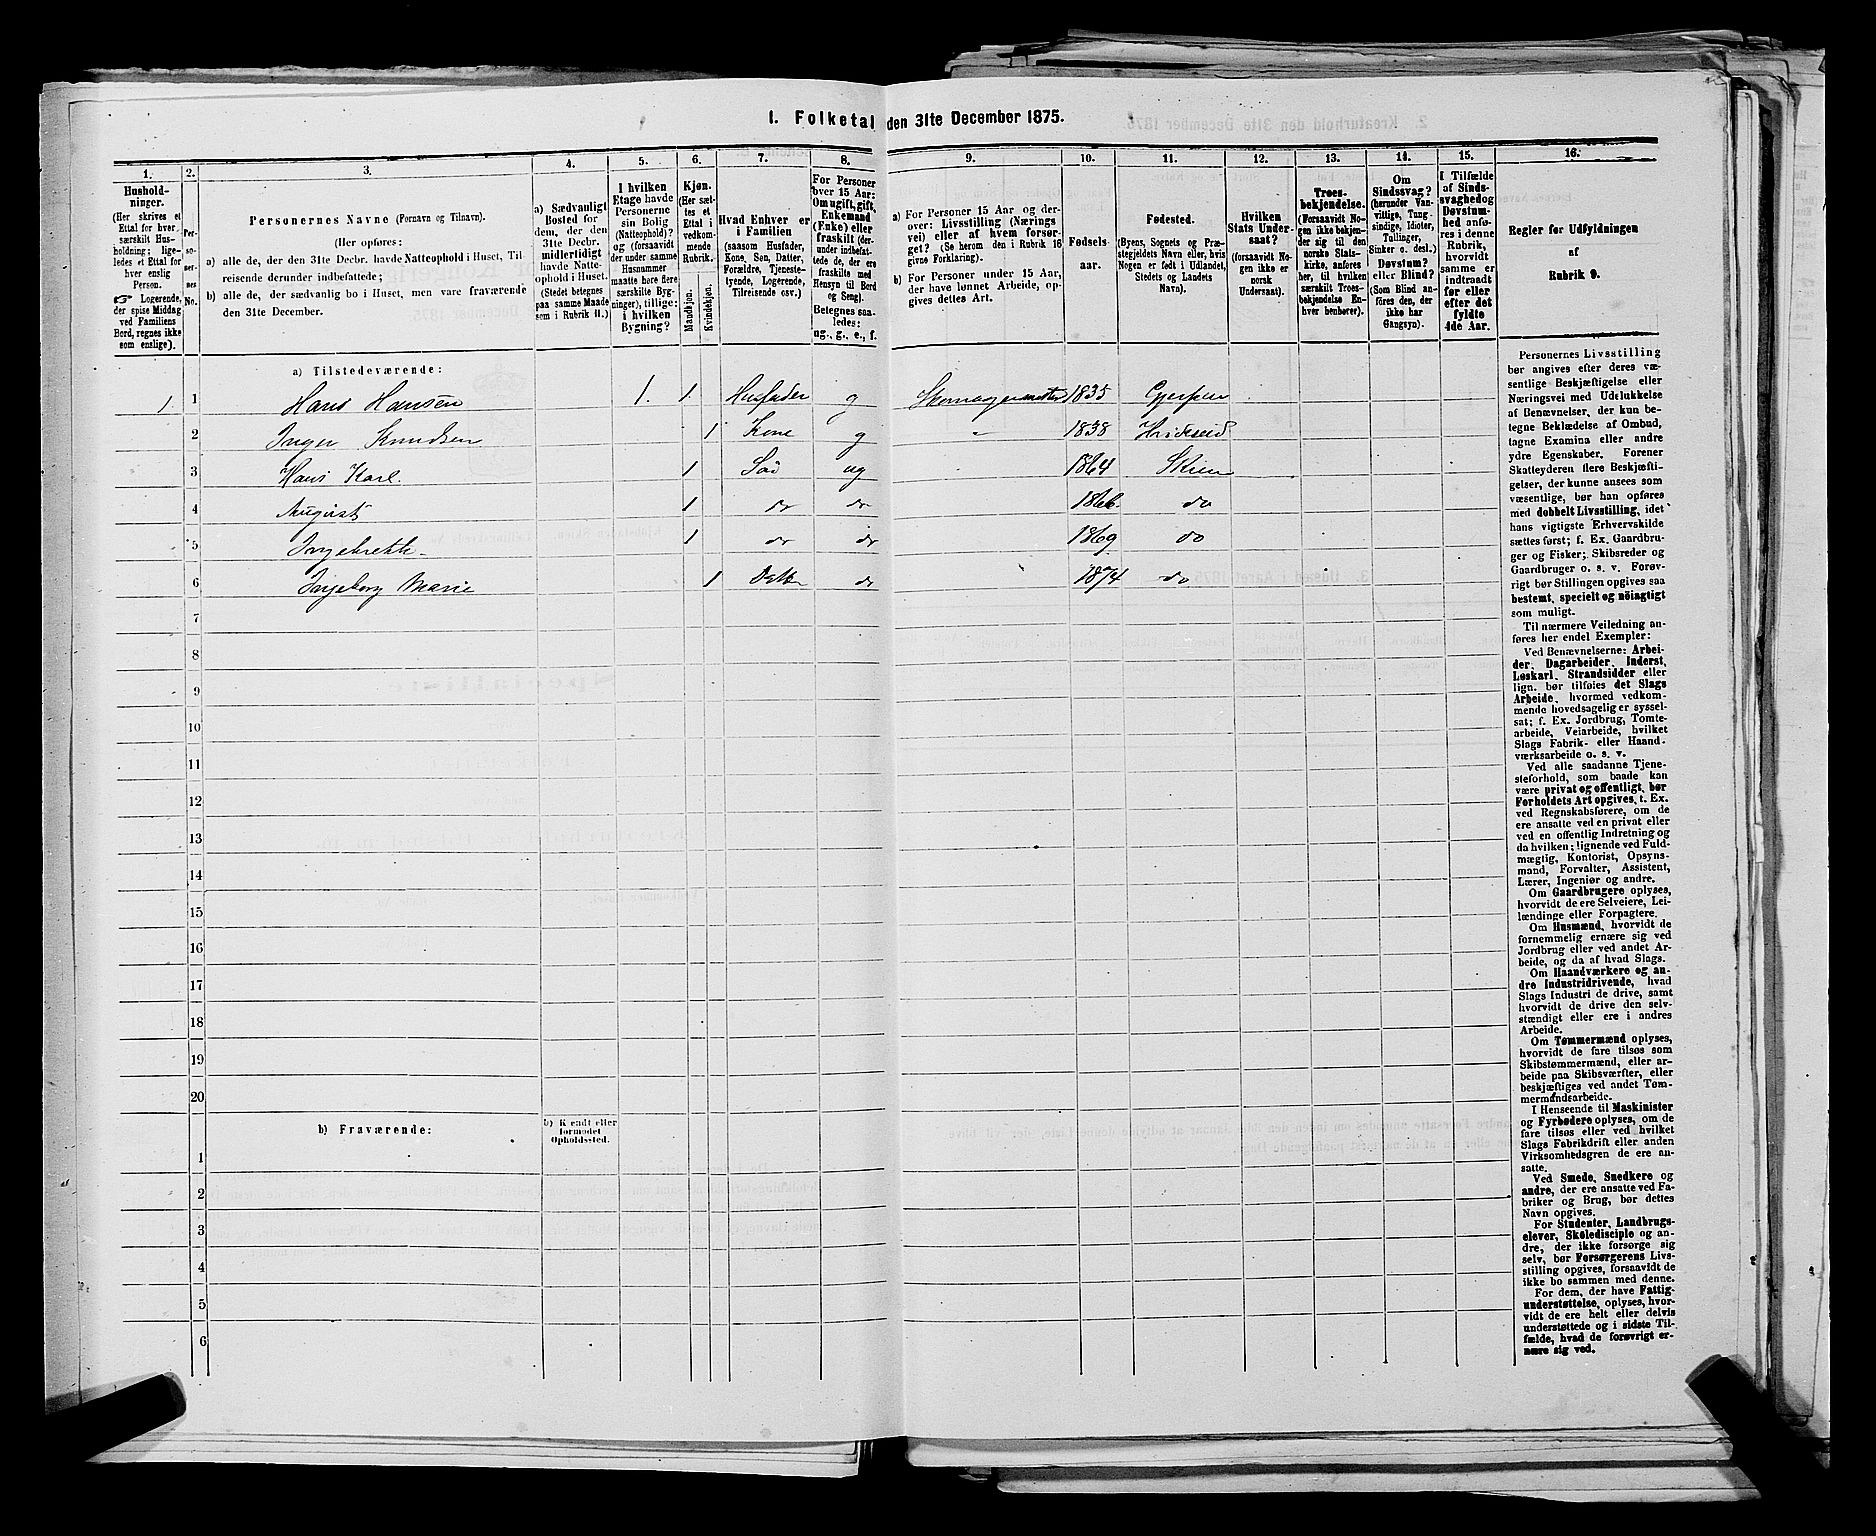 1. Folketal den 31te December 1875.
1.
Hushold-
ninger.
(Her skrives et
Ettal for hver
særskilt Hus-
holdning; lige-
ledes et Ettal for
hver enslig
Person.
☞ Logerende,
der spise Middag
ved Familiens
Bord, regnes ikke
som enslige).
2.
Per-
so-
ner-
nes
No.
3.
Personernes Navne (Fornavn og Tilnavn).
(Her opføres:
a) alle de, der den 31te Decbr. havde Natteophold i Huset, Til
reisende derunder indbefattede;
b) alle de, der sædvanlig bo i Huset, men vare fraværende
den 31te December.
4.
a) Sædvanligt
Bosted for
dem, der den
31te Decbr.
midlertidigt
havde Natte-
ophold i Huset.
(Stedet betegnes
paa samme Maade
som i Rubrik 11.)
5.
I hvilken
Etage havde
Personerne
sin Bolig
(Natteophold)?
og (forsaavidt
der under samme
Husnummer
maatte høre flere
særskilte Byg-
ninger), tillige:
i hvilken
Bygning?
6.
Kjøn.
(Her sæt-
tes et
Ettal i
vedkom-
mende
Rubrik.
Mandkjøn.
Kvindekjøn.
7.
Hvad Enhver er
i Familien
(saasom Husfader,
Kone, Søn, Datter,
Forældre, Tjeneste-
tyende, Logerende,
Tilreisende osv.)
8.
For Personer
over 15 Aar:
Om ugift, gift,
Enkemand
(Enke) eller
fraskilt (der-
under indbefat-
tede de, der ere
fraskilte med
Hensyn til Bord
og Seng).
Betegnes saa-
ledes:
ug., g., e., f.
9.
a) For Personer 15 Aar og der-
over: Livsstilling (Nærings
vei) eller af hvem forsør-
get? (Se herom den i Rubrik 16
givne Forklaring).
b) For Personer under 15 Aar,
der have lønnet Arbeide, op-
gives dettes Art.
10.
Fødsels-
aar.
11.
Fødested.
(Byens, Sognets og Præ-
stegjeldets Navn eller, hvis
Nogen er født i Udlandet,
Stedets og Landets
Navn).
12.
Hvilken
Stats Under-
saat?
(forsaavidt No-
gen ikke er
norsk
Undersaat).
13.
Troes-
bekjendelse.
(Forsaavidt No-
gen ikke bekjen-
der sig til den
norske Stats-
kirke, anføres
her, til hvilken
særskilt Troes-
bekjendelse En-
hver henhører).
14.
Om
Sindssvag?
(herunder Van-
vittige, Tung-
sindige, Idioter,
Tullinger,
Sinker o. desl.)
Døvstum?
eller Blind?
(Som Blind an-
føres den, der
ikke har
Gangsyn).
15.
I Tilfælde
af Sinds-
svaghed og
Døvstum-
hed anfø-
res i denne
Rubrik,
hvorvidt
samme er
indtraadt
før eller
efter det
fyldte
4de Aar.
16.
Regler for Udfyldningen
af
Rubrik 9.
a) Tilstedeværende:
1. 1 Hans Hansen 1. 1. Husfader g Skomagermester 1835 Gjerpen
2 Inger Knudsen 1 Kone g " 1838 Hvideseid
3 Hans Karl. 1 Søn ug 1864 Skien
4 August 1 do do 1866. do
5 1 do do 1869 do
6 Ingeborg Marie 1 Datter do 1874 do
7
8
9
10
11
12
13
14
15
16
17
18
19
20
b) Fraværende:
b) Kjendt eller
formodet
Opholdssted.
1
2
3
4
5
6
Personernes Livsstilling
bør angives efter deres væ-
sentlige Beskjæftigelse eller
Næringsvei med Udelukkelse
af Benævnelser, der kun be-
tegne Beklædelse af Ombud,
tagne Examina eller andre
ydre Egenskaber. Forener
Skatteyderen flere Beskjæfti-
gelser, der kunne ansees som
væsentlige, bør han opføres
med dobbelt Livsstilling, idet
hans vigtigste Erhvervskilde
sættes først; f. Ex. Gaardbru-
ger og Fisker; Skibsreder og
Gaardbruger o. s. v. Forøv-
rigt bør Stillingen opgives saa
bestemt, specielt og nöiagtigt
som muligt.
Til nærmere Veiledning an-
føres her endel Exempler:
Ved Benævnelserne: Arbei-
der, Dagarbeider, Inderst,
Løskarl, Strandsidder eller
lign. bør tilføies det Slags
Arbeide, hvormed vedkom-
mende hovedsagelig er syssel-
sat; f. Ex. Jordbrug, Tomte-
arbeide, Veiarbeide, hvilket
Slags Fabrik- eller Haand-
værksarbeide o. s. v.
Ved alle saadanne Tjene-
steforhold, som baade kan
være privat og offentligt, bør
Forholdets Art opgives, t. Ex.
ved Regnskabsførere, om de
ere ansatte ved en privat eller
ved en offentlig Indretning og
da hvilken; lignende ved Fuld-
mægtig, Kontorist, Opsyns-
mand, Forvalter, Assistent,
Lærer, Ingeniør og andre.
Om Gaardbrugere oplyses,
hvorvidt de ere Selveiere, Lei-
lændinge eller Forpagtere.
Om Husmænd, hvorvidt de
fornemmelig ernære sig ved
Jordbrug eller ved andet Ar-
beide, og da af hvad Slags.
Om Haandværkere og an-
dre Industridrivende, hvad
Slags Industri de drive, samt
hvorvidt de drive den selv-
stændigt eller ere i andres
Arbeide.
Om Tømmermænd oplyses,
hvorvidt de fare tilsøs som
Skibstømmermænd, eller ar-
beide paa Skibsværfter, eller
beskjæftiges ved andet Tøm-
mermandsarbeide.
I Henseende til Maskinister
og Fyrbødere oplyses, om de
fare tilsøs eller ved hvilket
Slags Fabrikdrift eller anden
Virksomhedsgren de ere an-
satte.
Ved Smede, Snedkere og
andre, der ere ansatte ved Fa-
briker og Brug, bør dettes
Navn opgives.
For Studenter, Landbrugs-
elever, Skoledisciple og an-
dre, der ikke forsørge sig
selv, bør Forsørgerens Livs-
stilling opgives, forsaavidt de
ikke bo sammen med denne.
For dem, der have Fattig-
understøttelse, oplyses, hvor-
vidt de ere helt eller delvis
understøttede og i sidste Til-
fælde, hvad de forøvrigt er-
nære sig ved.